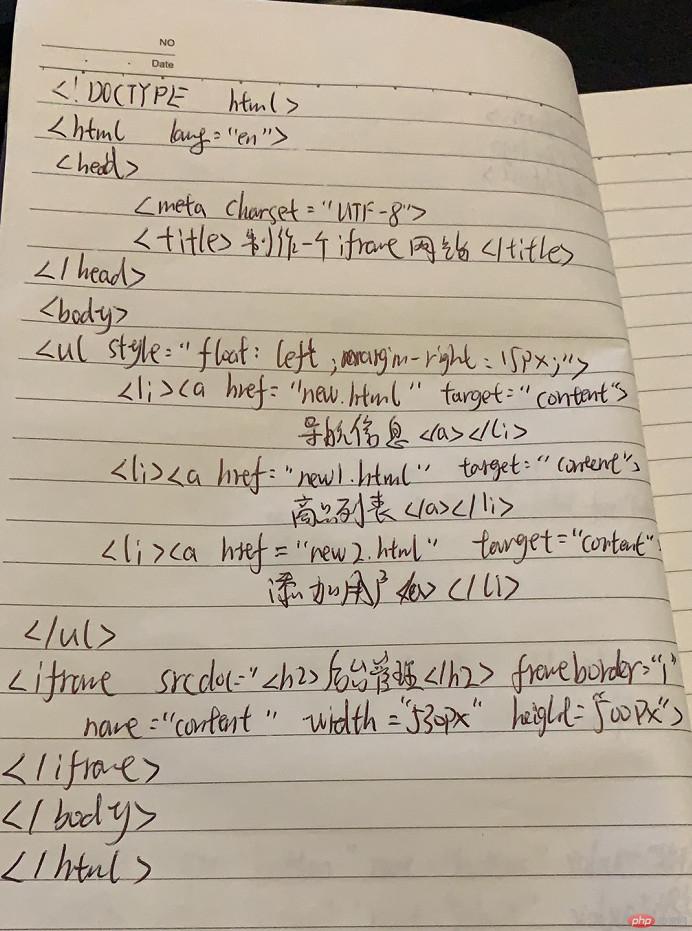 NO
Date
<!DOCTYPE html>
<html lang="en">
<head>
<meta charset="UTF-8">
<title>制作一个iframe网站</title>
</head>
<body>
<ul style="float: left; margin-right: 15px;">
<li><a href="new.html" target="content">
导航信息</a></li>
<li><a href="new1.html" target="content">
商品列表</a></li>
<li><a href="new2.html" target="content"
添加用户</a></li>
</ul>
<iframe srcdoc="<h2>后台管理</h2> frameborder="1"
name="content" width="530px" height="500px">
</iframe>
</body>
</html>
php